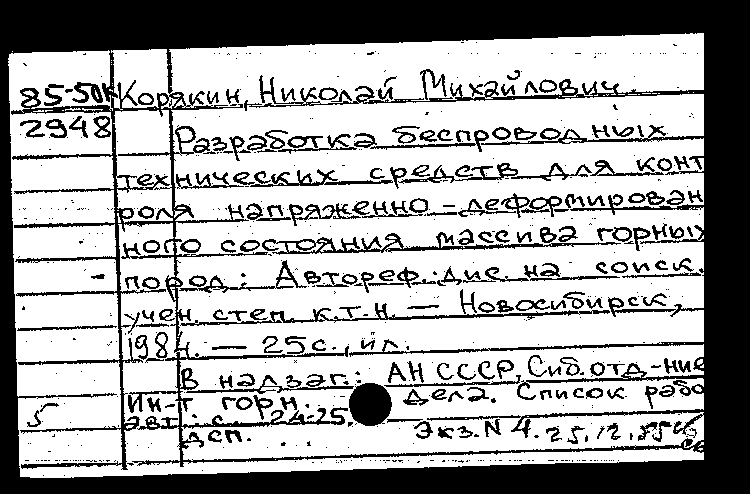 85-50к Корякин, Николай Михайлович.
2948 Разработка беспроводных
технических средств для конт
роля напряженно-деформирован
ного состояния массива горных
- пород: Автореф. дис. на соиск.
учен. степ. к.т.н. — Новосибирск,
1984. — 25 с., ил.
В надзаг.: АН СССР, Сиб. отд-ние
Ин-т горн. дела. Список рабо
5 авт.: с. 24-25.
дсп. Экз. N 4. 25.12.85